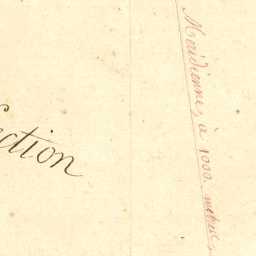 ction
Méridienne, à 1000 mètres